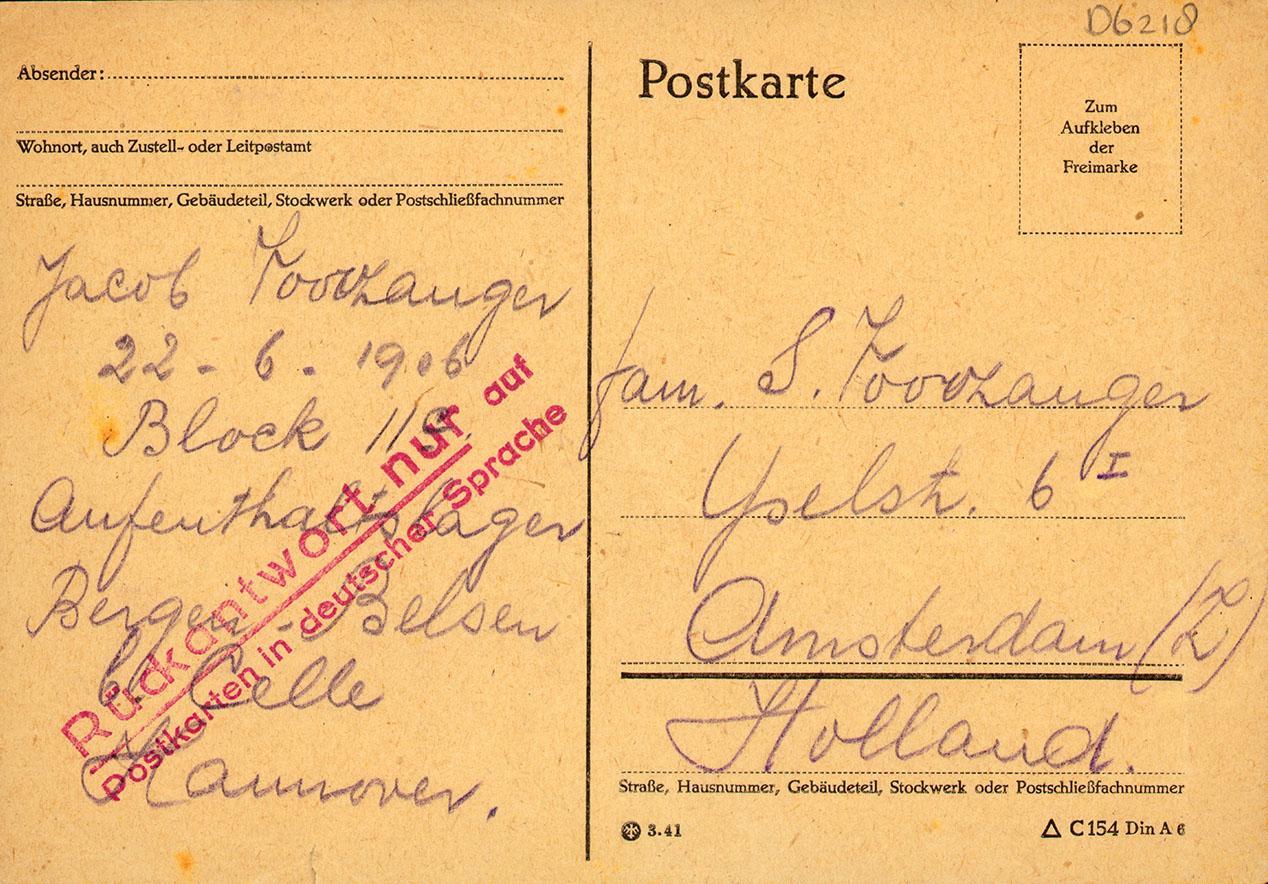 D6218
Absender:
Wohnort, auch Zustell- oder Leitpostamt
Straße, Hausnummer, Gebäudeteil, Stockwerk oder Postschließfachnummer
Jacob Voorzanger
22 - 6 - 1906
Block 11/9.
Aufenthaltslager
Bergen-Belsen
b. Celle
Hannover.
Rückantwort nur auf
Postkarten in deutscher Sprache
Postkarte
Zum
Aufkleben
der
Freimarke
fam. S. Voorzanger
Yselstr. 6 I
Amsterdam (Z)
Holland.
Straße, Hausnummer, Gebäudeteil, Stockwerk oder Postschließfachnummer
3.41
C 154 Din A 6